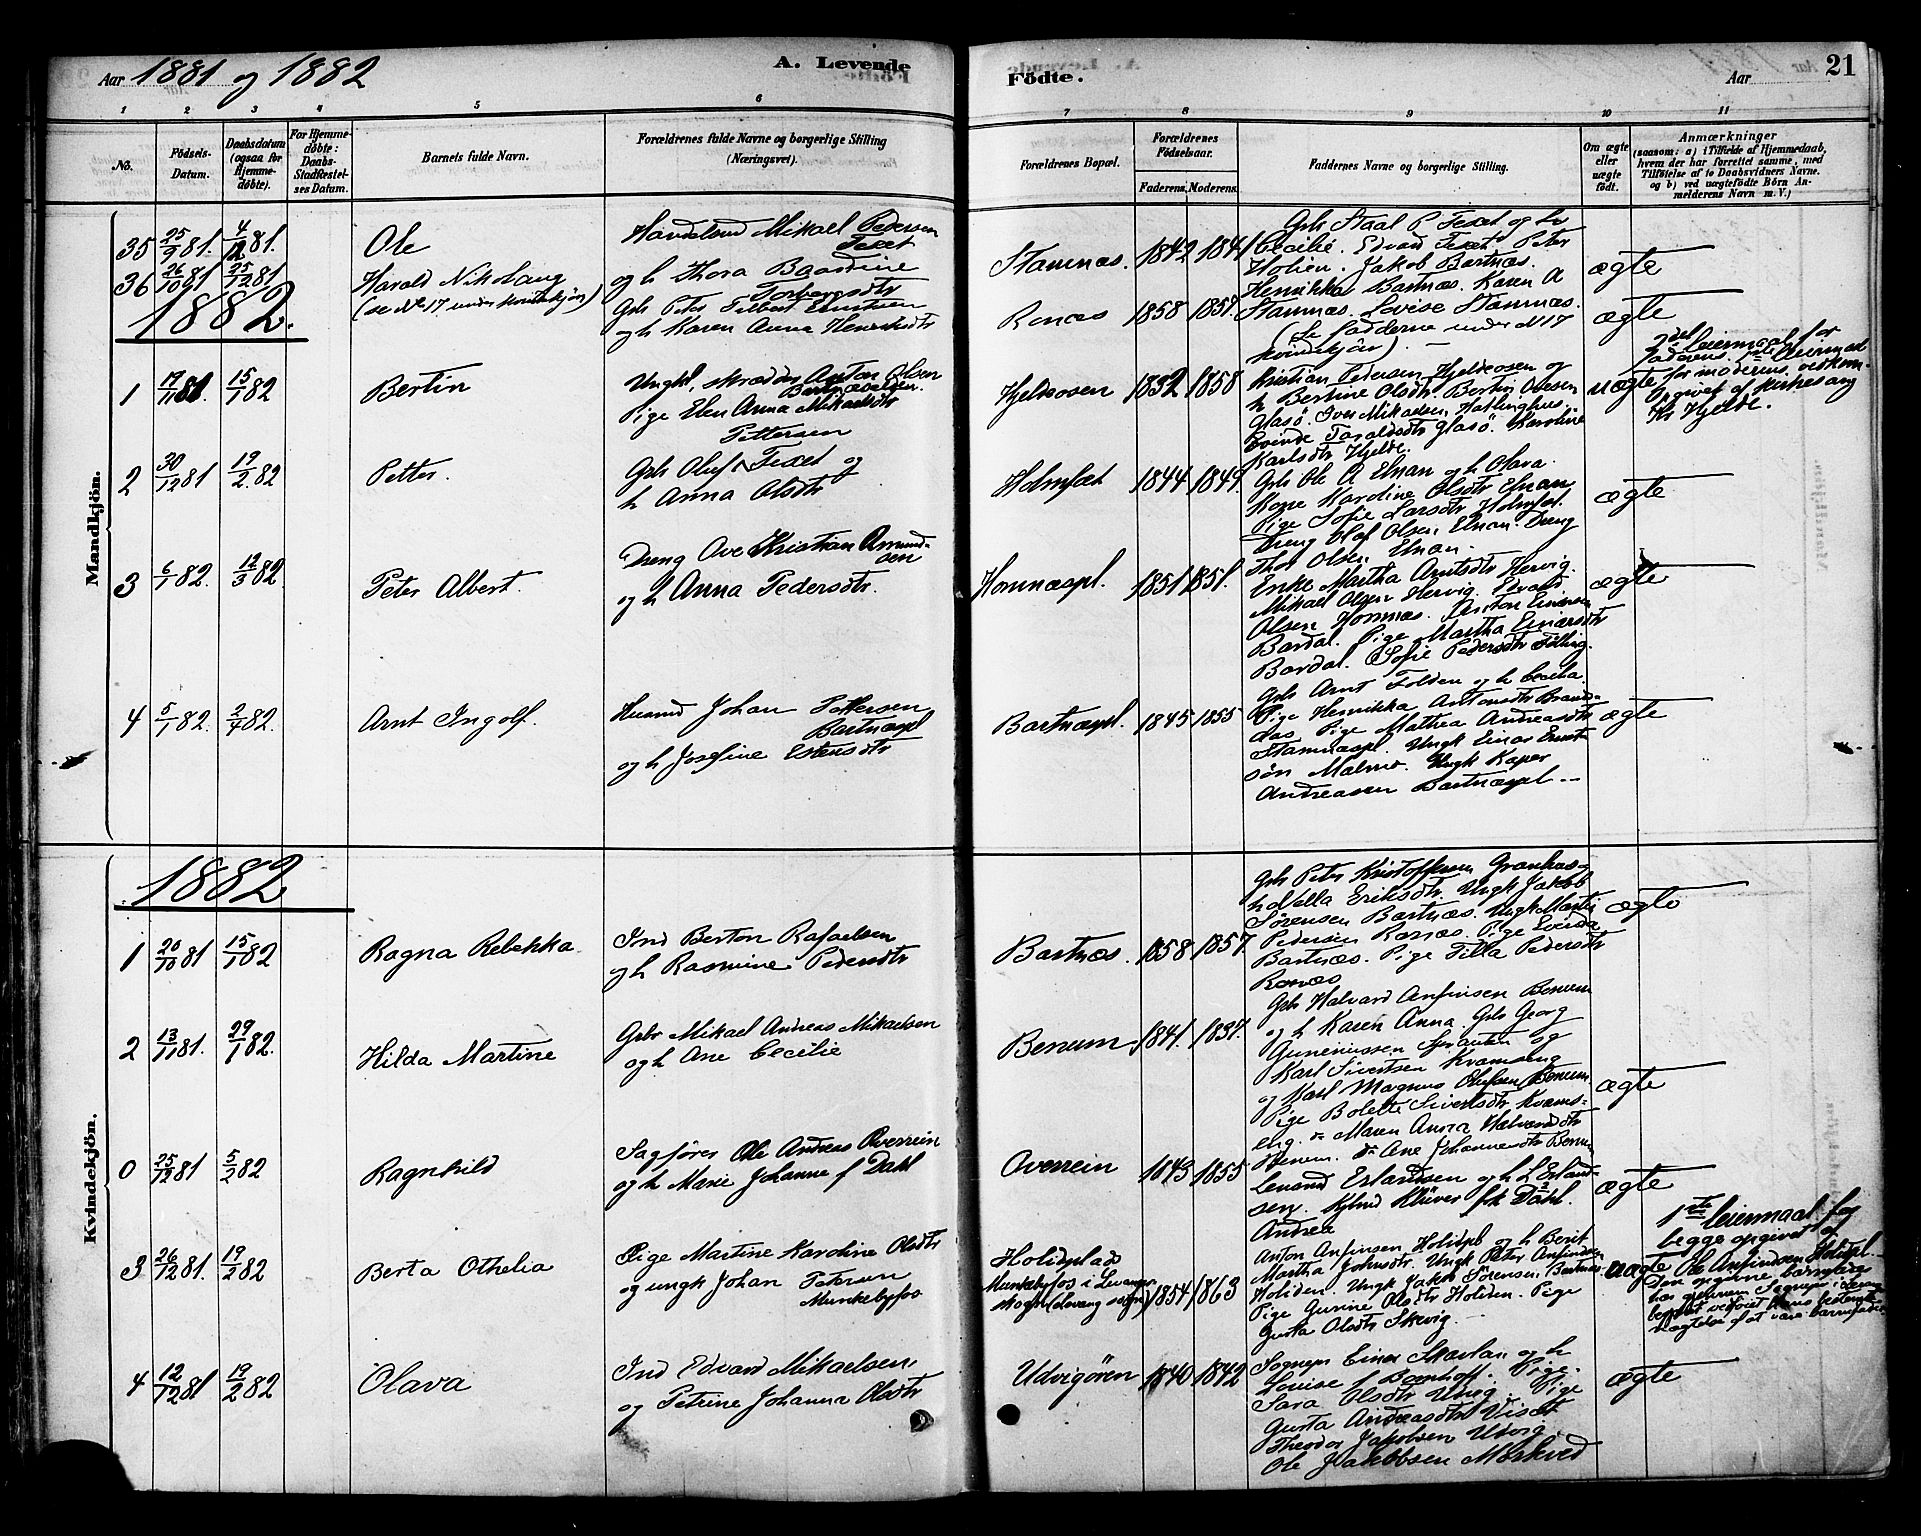 Aar 1881 og 1882
A. Levende
Födte.
Aar
21
1 2 3 4 5 6 7 8 9 10 11
No.
Födsels-
Datum.
Daabsdatum
(ogsaa for
Hjemme-
döbte).
For Hjemme-
döbte:
Daabs-
Stadfæstel-
ses Datum.
Barnets fulde Navn.
Forældrenes fulde Navne og borgerlige Stilling
(Næringsvei).
Forældrenes Bopæl.
Forældrenes
Födselsaar.
Faderens. Moderens.
Faddernes Navne og borgerlige Stilling.
Om ægte
eller
uægte
födt.
Anmærkninger
(saasom: a) i Tilfælde af Hjemmedaab,
hvem der har forrettet samme, med
Tilföielse af to Daabsvidners Navne.
og b) ved uægtefödte Börn An-
melderens Navn m. V.)
Mandkjön.
35 25/9 81. 4/12 81.
Ole
Mikael Pedersen
Texet
og h Thora Baardine
Torbergsdtr
Stamnæs. 1842 1841
Gbr Staal P Texet og h
Cecilie. Edvard Texet Peter
Holien. Jakob Bartnæs.
Henrikka Bartnæs. Karen A
Stamnæs. Lovise Stamnæs.
ægte
36 26/10 81 25/12 81
Harald Nikobang
(se No 17 under kvindekjön)
Gbr Peter Tilbert Ernstsen
og h Karen Anna Henriksdtr
Ronæs 1858 1857.
(Se fadderne under No 17
kvindekjön) —
ægte
1882.
1 17/11 81. 15/1 82
Bertin
Ungkl. skrædder Anton Olsen
Pige Elen Anna Mikaelsdtr
Pettersen
Hjeldeosen 1852 1858
Kristian Pedersen Hjeldeosen og
h Bertine Olsdtr. Bertin Olesen
Glasö. Iver Mikaelsen Hatlinghus.
Evinde Taraldsdtr Glasö. Karoline
Karlsdtr Hjelde.
uægte
2det leiermaal for
faderens. 1ste leiermaal
for moderens vedkom.
Opgivet af kirkesang
Kr Hjelde.
2 30/12 81 19/2 82
Petter.
Gbr Olef Texet og
h Anna Olsdtr
Holmset 1844 1849.
Gbr Ole A Elnan og h Olava.
Kone Karoline Olsdtr Elnan
Pige Sofie Larsdtr Holmset.
Dreng Olaf Olsen Elnan. Dreng
Thor Olsen Elnan.
ægte
3 6/1 82. 12/3 82
Peter Albert.
Dreng Ove Kristian Amund-
sen
og h Anna Pedersdtr.
Homnæspl. 1851 1851.
Enke Martha Arntsdtr Hervig.
Mikael Olsen Hervig. Edvard
Olsen Homnæs. Anton Einersen
Bardal. Pige Martha Einersdtr
Bardal. Sofie Pedersdtr Tilling.
ægte
4 5/1 82. 2/4 82.
Arnt Ingolf.
Husmd Johan Pettersen
Bartnæspl
og h Josefine Estensdtr
Bartnæspl. 1845 1855
Gbr Arnt Folden og h Cecilia.
Pige Henrikka Antonsdtr Brand-
aas Pige Mathea Andreasdtr
Stamnæspl. Ungk Einar Ernst-
sön Malmo. Ungk Kaper
Andreasen Bartnæspl —
ægte
Kvindekjön.
1882
1 20/10 81 15/1 82
Ragna Rebekka
Ind Berton Rafaelsen
og h Rasmine Pedersdtr
Bartnæs. 1858 1857.
Gbr Peter Kristoffersen Granhaug
h Nella Eriksdtr. Ungk Jakob
Sörensen Bartnæs. Ungk Martin
Pedersen Ronæs. Pige Evinda
Bartnæs. Pige Tilla Pedersdtr
Ronæs
ægte
2 13/11 81. 29/1 82.
Hilda Martine
Gbr Mikael Andreas Mikaelsen
og h Ane Cecilie
Benum 1841. 1837.
Gbr Halvard Anfinsen Benum
og h Karen Anna Gbr Georg
Guneriussen og
Karl Sivertsen Kvamseng
og Karl Magnus Olufsen Benum
Pige Bolette Sivertsdtr Kvams-
eng. do Maren Anna Halvardsdtr
Benum. do Ane Johannesdtr Benum
ægte
0 25/12 81 5/2 82
Ragnhild
Sagförer Ole Andreas Overrein
og h Marie Johanne f Dahl
Overrein 1843 1855
Lensmd Erlandsen og h L Erland-
sen. Klüver frk Dahl.
Andrea
ægte
3 26/12 81. 19/2 82
Berta Othelia
Pige Martine Karoline Olsdtr
og ungk Johan Petersen
Munkebyfos
Holidplads
Munkebyfos i Levanger
skogn (Levang sogn) 1854 1863
Anton Anfinsen Holidpl og h Berit
Martha Johnsdtr. Ungk Peter Anfindsen
Holiden. Ungk Jakob Sörensen Bartnæs.
Pige Gurine Olsdtr Holiden. Pige
Gusta Olsdtr Skevig. —
uægte
1ste leiermaal for
begge opgivet af
Ole Anfindsen Holidpl.
Den opgivne barnefader
har gjennem Sogneprr i Levang
nægtelse af at være barnefader
4 12/12 81 19/2 82
Olava
Ind Edvard Mikaelsen
og Petrine Johanna Olsdtr
Udvigören 1840 1842
Sognepr Einer Skarlan og h
Lovise f Bomhoff. Pige
Sara Olsdtr Udvig. Pige
Gusta Andreasdtr Viset
Theodor Jakobsen Udvig
Ole Jakobsen Mörkved
ægte